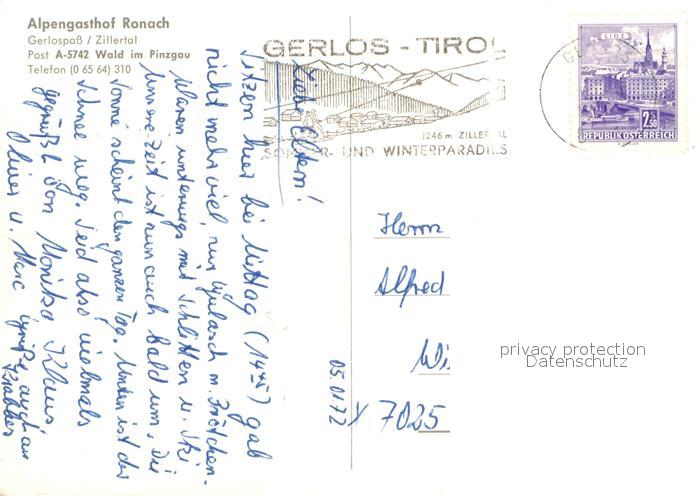 Alpengasthof Ronach
Gerlospaß / Zillertal
Post A-5742 Wald im Pinzgau
Telefon (0 65 64) 310
GERLOS - TIROL
1246 m ZILLERTAL
SOMMER- UND WINTERPARADIES
LINZ
2.50
REPUBLIK ÖSTERREICH
Liebe Eltern!
Sitzen hier bei Mittag (14 45) gab
nicht mehr viel, nur Gulasch m. Brötchen.
Waren unterwegs mit Schlitten u. Ski
Unsere Zeit ist nun auch bald um. Die
Sonne scheint den ganzen Tag. Unten ist der
Schnee weg. Seid also vielmals
gegrüßt von Monika, Klaus,
Oliver u. Marc Grüße auch an
05.01.72
Herrn
Alfred
Wi
7025
privacy protection
Datenschutz